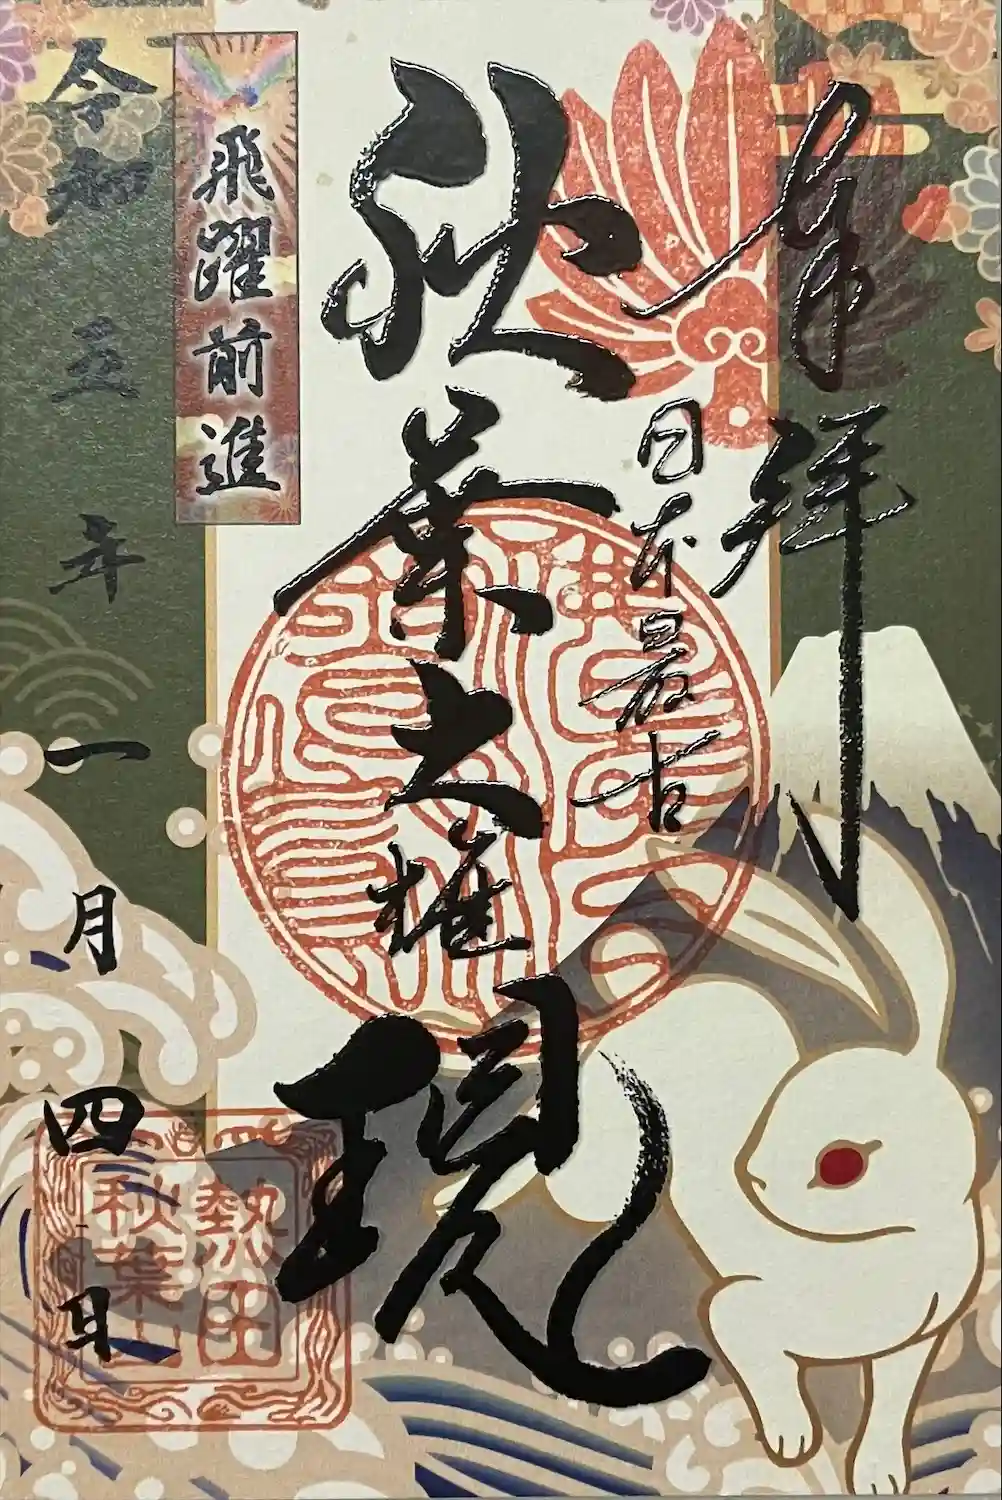 奉拝
日本最古
秋葉大権現
飛躍前進
令和五年一月四日
熱田
秋葉山